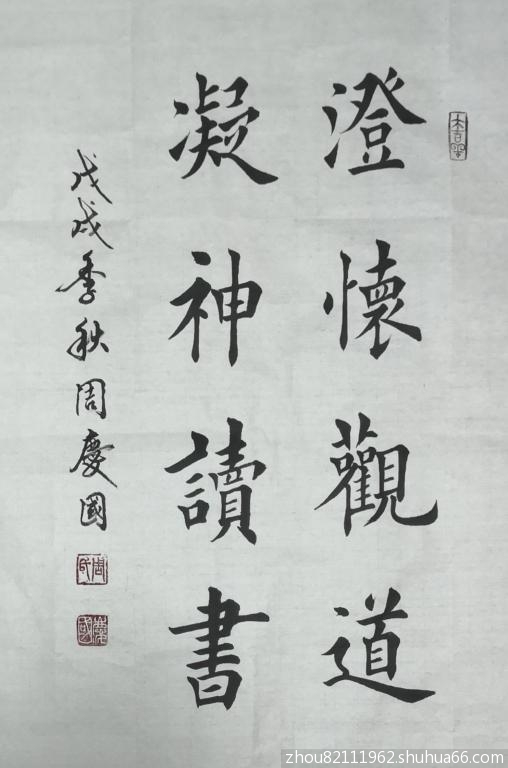 澄懷觀道
凝神讀書
戊戌季秋周慶國
zhou82111962.shuhua66.com